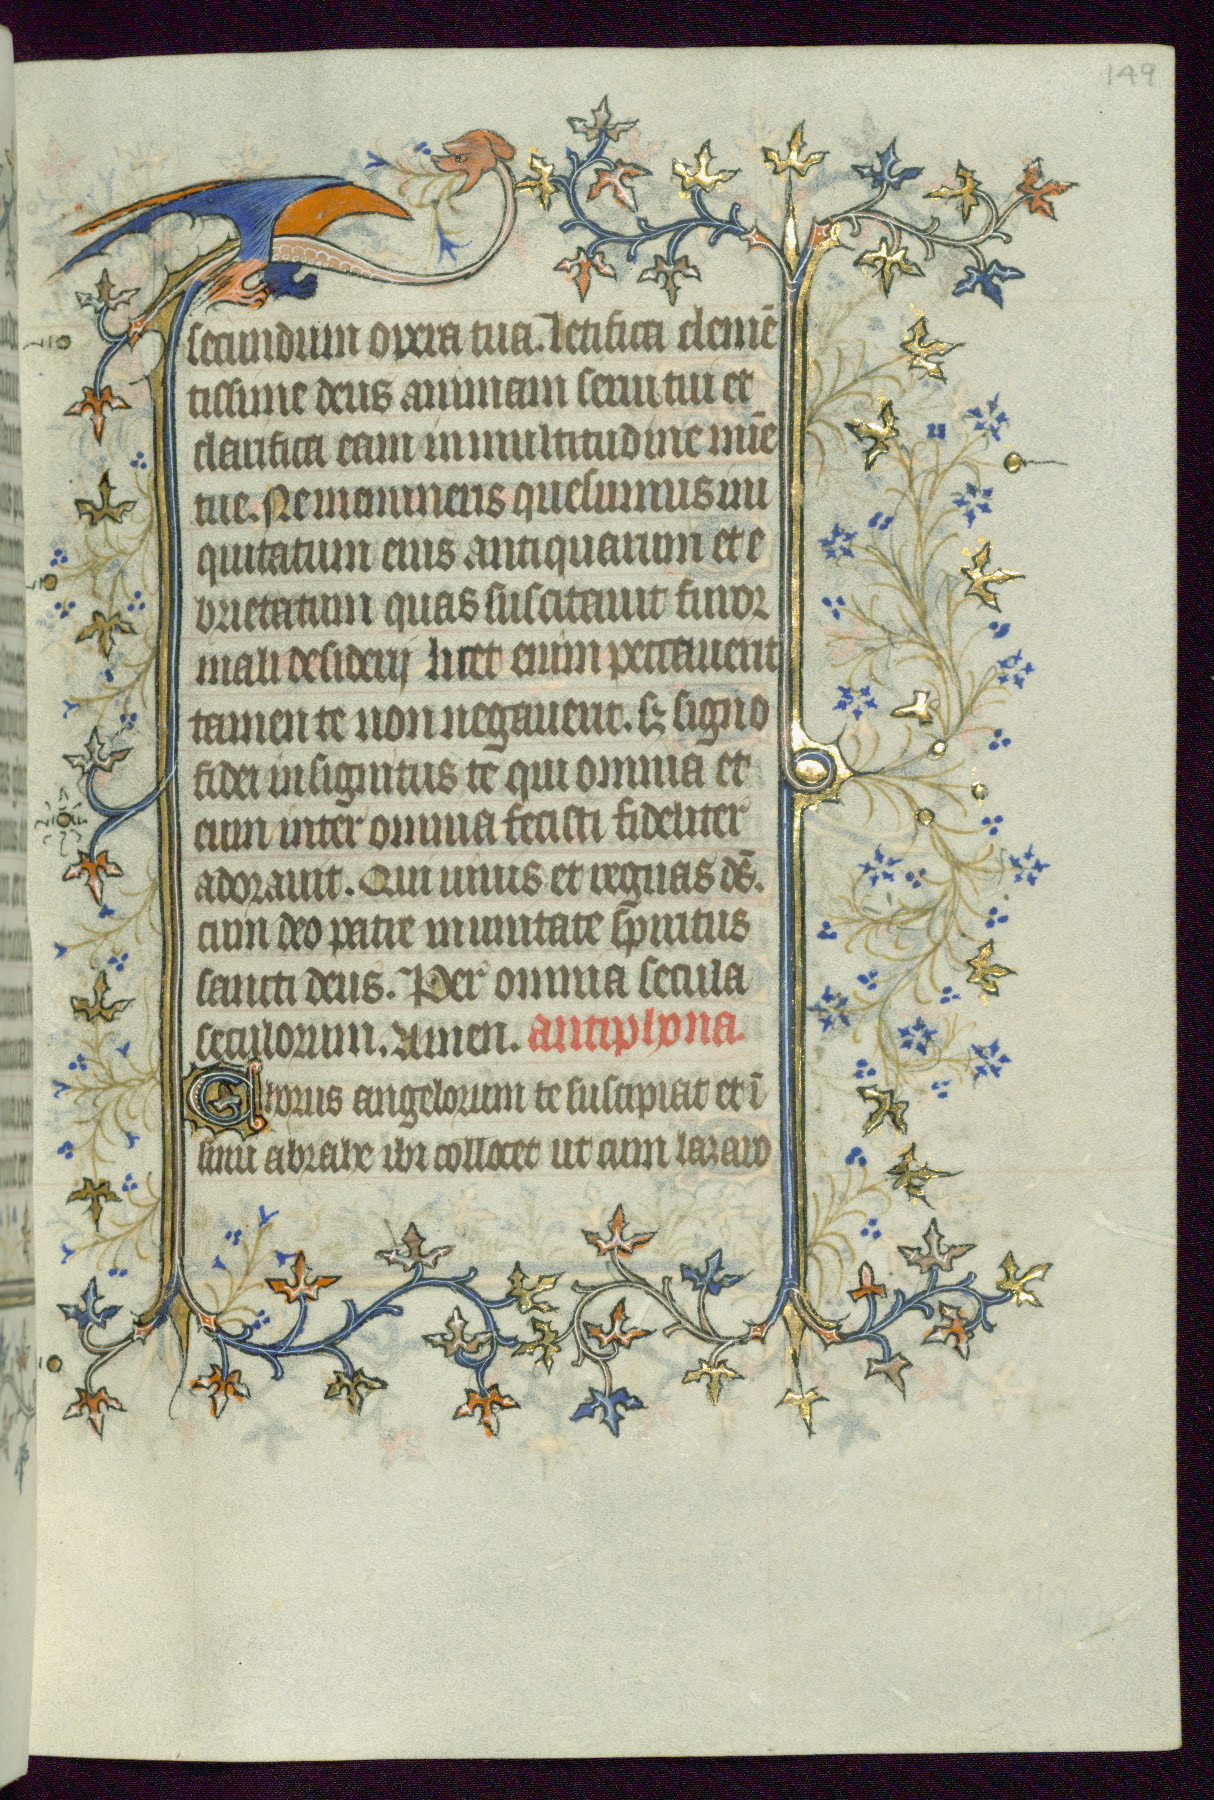 149
secundum opera tua. letifica clemē
tissime deus animam serui tui et
clarifica eam in multitudine mīe
tue. Ne memineris quesumus ini
quitatum eius antiquarum et e
brietatum quas suscitauit furor
mali desiderij licet enim peccauerit
tamen te non negauerit. sꝫ signo
fidei insignitus te qui omnia et
eum inter omnia fecisti fideliter
adorauit. Qui uiuis et regnas ds̄.
cum deo patre in unitate spiritus
sancti deus. Per omnia secula
seculorum. Amen. antiphona.
Chorus angelorum te suscipiat et ī
sinu abrahe ibi collocet ut cum lazaro